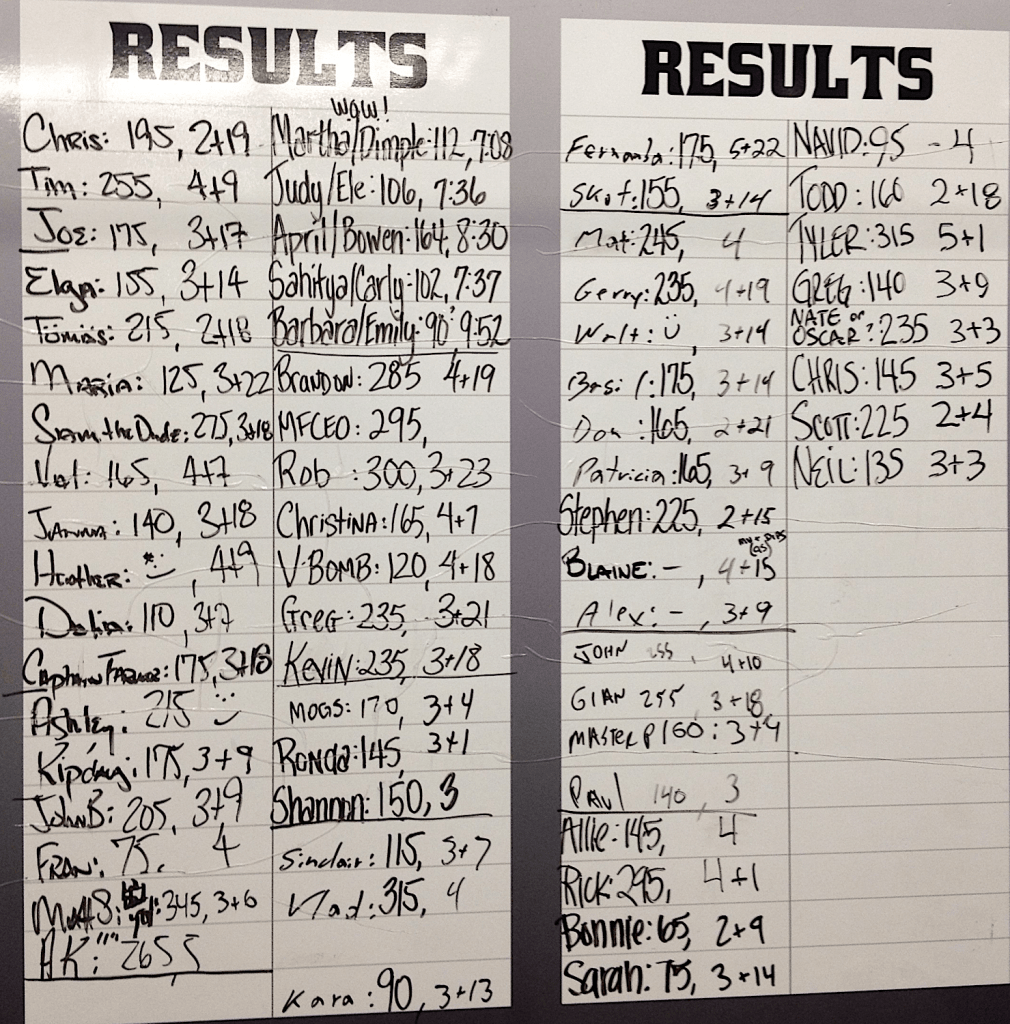 RESULTS
Chris: 195, 2+19
Tim: 255, 4+9
Joe: 175, 3+17
155, 3+14
Tomás: 215, 2+18
Maria: 125, 3+22
Sam the Dude: 275, 3+18
165, 4+7
140, 3+18
Heather: , 4+9
110, 3+7
Captain 175, 3+18
Ashley: 215 :)
175, 3+9
John B: 205, 3+9
Fran: 75, 4
Matt S: 345, 3+6
AK: 265
wow!
Martha/Dimple: 112, 7:08
Judy/Ele: 106, 7:36
April/Bowen: 164, 8:30
Sahitya/Carly: 102, 7:37
Barbara/Emily: 90 9:52
Brandon: 285 4+19
MFCEO: 295,
Rob: 300, 3+23
Christina: 165, 4+7
V-BOMB: 120, 4+18
Greg: 235, 3+21
Kevin: 235, 3+18
MOGS: 170, 3+4
Ronda: 145, 3+1
Shannon: 150, 3
Sinclair: 115, 3+7
Vlad: 315, 4
Kara: 90, 3+13
RESULTS
Fernanda: 175, 5+22
Skot: 155, 3+14
Mat: 245, 4
Gerry: 235, 4+19
Walt: :) 3+14
Basil: 175, 3+14
Don: 165, 2+21
Patricia: 165, 3+9
Stephen: 225, 2+15
BLAINE: -, 4+15
Alex: -, 3+9
JOHN 255, 4+10
GIAN 255, 3+18
MASTER P 160: 3+4
PAUL 140, 3
Allie: 145, 4
Rick: 295, 4+1
Bonnie: 65, 2+9
Sarah: 75, 3+14
NAVID: 95 - 4
TODD: 160 2+18
TYLER: 315 5+1
GREG: 140 3+9
NATE or
OSCAR?: 235 3+3
CHRIS: 145 3+5
SCOTT: 225 2+4
NEIL: 135 3+3